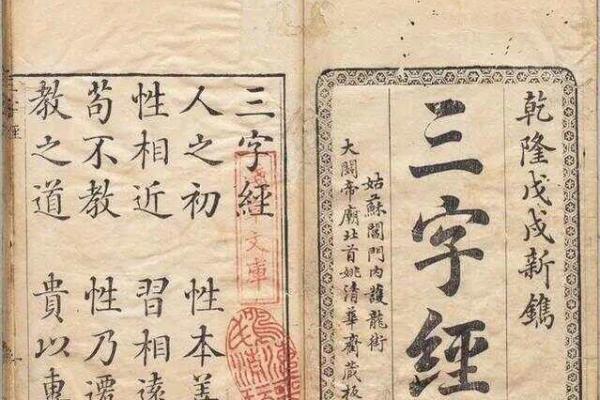 乾隆戊戌新鐫
三字經
姑蘇閶門內護龍街
大關帝廟北首姚清華齋藏板
三字經
文庫
人之初 性本善
性相近 習相遠
苟不教 性乃遷
教之道 貴以專